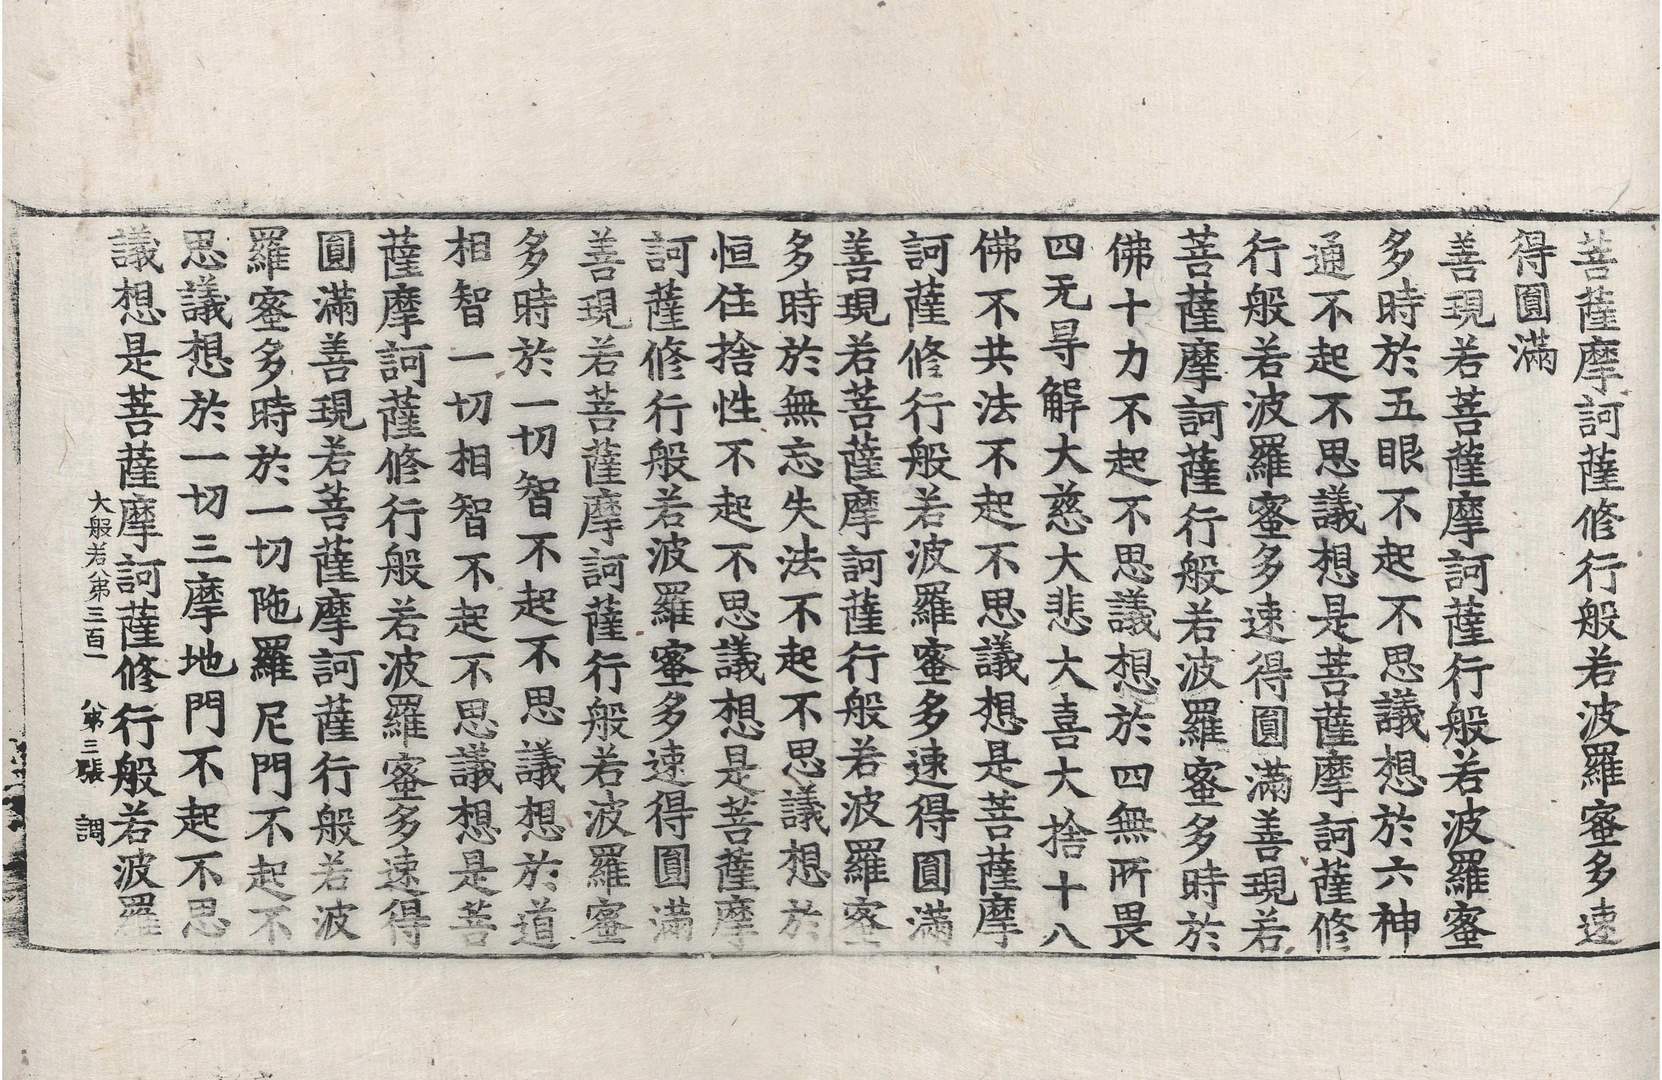 菩薩摩訶薩修行般若波羅蜜多速
得圓滿
善現若菩薩摩訶薩行般若波羅蜜
多時於五眼不起不思議想於六神
通不起不思議想是菩薩摩訶薩修
行般若波羅蜜多速得圓滿善現若
菩薩摩訶薩行般若波羅蜜多時於
佛十力不起不思議想於四無所畏
四无㝵解大慈大悲大喜大捨十八
佛不共法不起不思議想是菩薩摩
訶薩修行般若波羅蜜多速得圓滿
善現若菩薩摩訶薩行般若波羅蜜
多時於無忘失法不起不思議想於
恒住捨性不起不思議想是菩薩摩
訶薩修行般若波羅蜜多速得圓滿
善現若菩薩摩訶薩行般若波羅蜜
多時於一切智不起不思議想於道
相智一切相智不起不思議想是菩
薩摩訶薩修行般若波羅蜜多速得
圓滿善現若菩薩摩訶薩行般若波
羅蜜多時於一切陁羅尼門不起不
思議想於一切三摩地門不起不思
議想是菩薩摩訶薩修行般若波羅
大般若第三百一 第三張 調